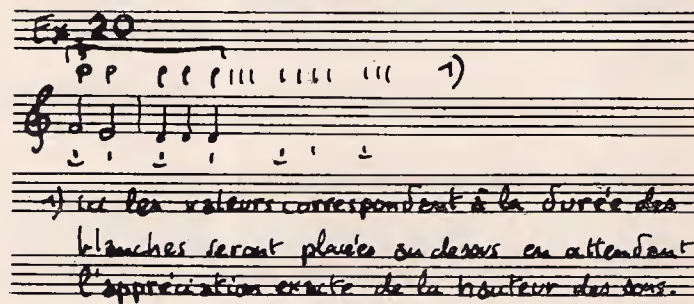 Ex. 20
1)
1) ici les valeurs correspondant à la durée des
blanches seront placées au dessus en attendant
l'appréciation exacte de la hauteur des sons.